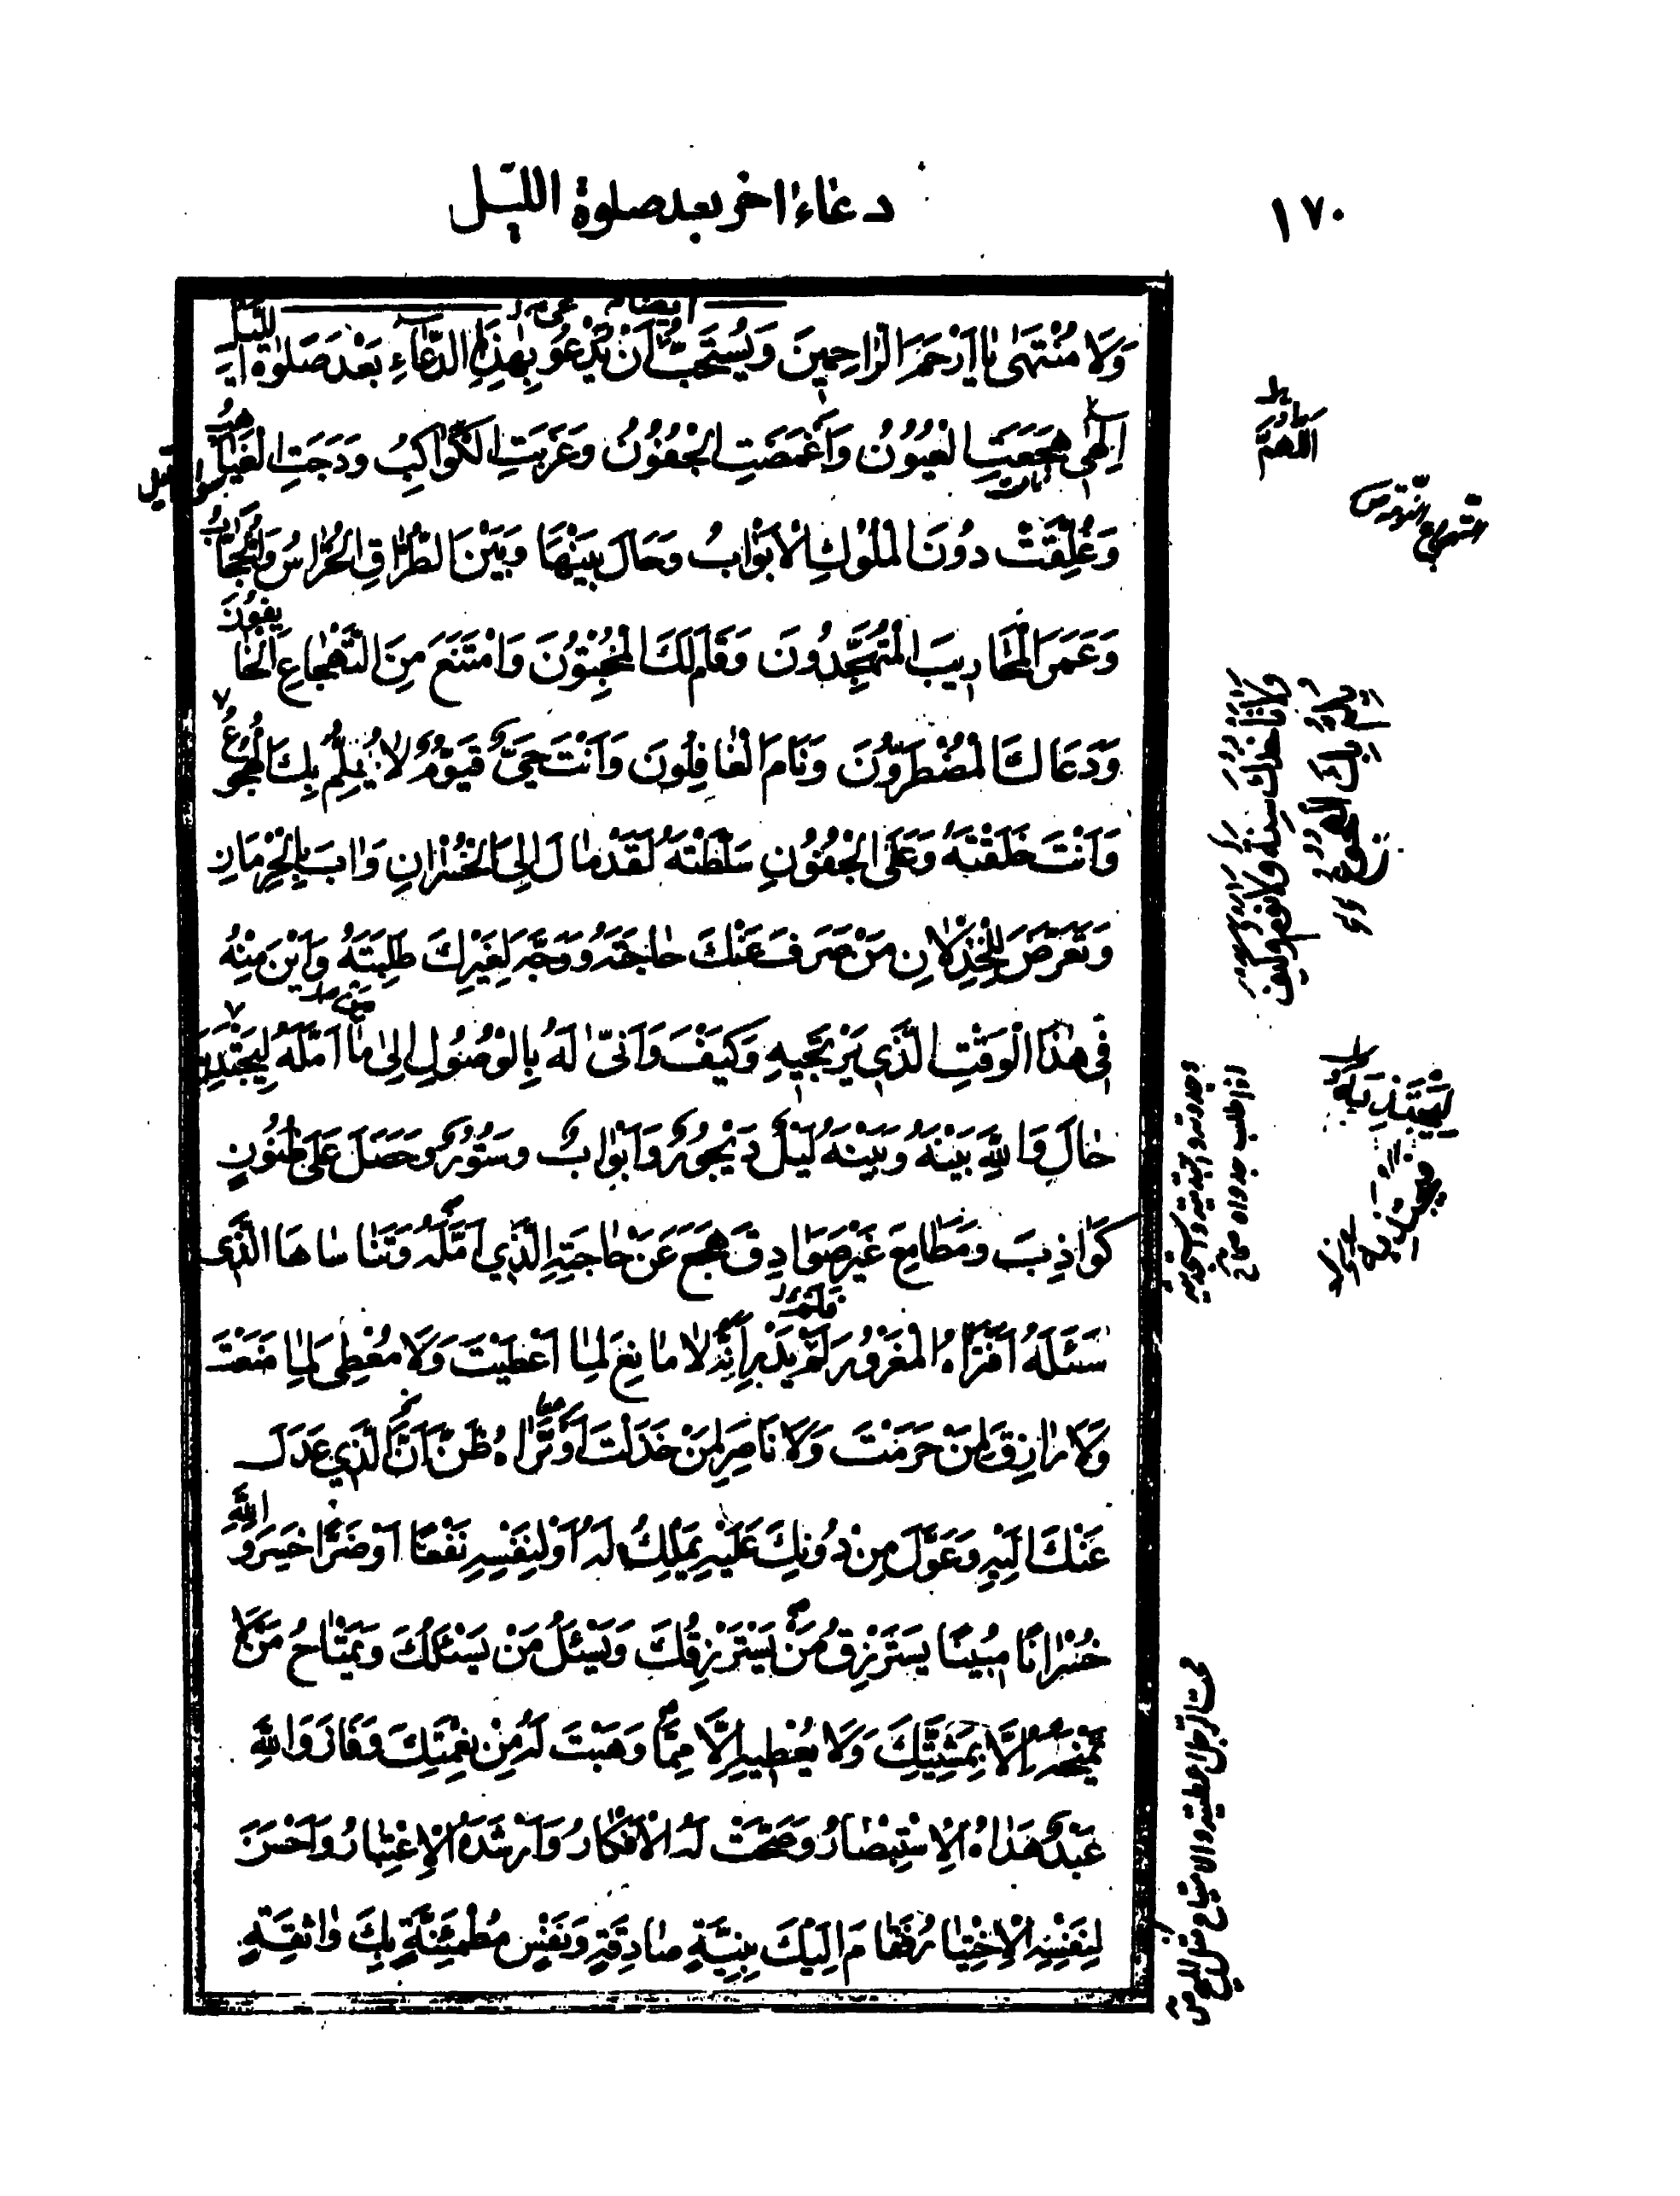 ١٧٠
دعاء اخر بعد صلوة الليل
وَلَا مُنْتَهىٰ يٰا اَرْحَمَ الرّٰاحِمينَ وَيُسْتَحَبُّ اَنْ يَدْعُوَ بِهٰذَا الدُّعٰآءِ بَعْدَ صَلٰوةِ اللَّيْلِ
اِلٰهي هَجَعَتِ الْعُيُوُنُ وَاَغْمَضَتِ الْجُفُوُنُ وَغَرَبَتِ الْكَوٰاكِبُ وَدَجَتِ الْغَيٰاهِبُ
وَغُلِّقَتْ دوُنَ الْمُلُوْكِ الْاَبْوٰابُ وَحٰالَ بَيْنَهٰا وَبَيْنَ الطُّرّٰاقِ الْحُرّٰاسُ وَالْحُجّٰابُ
وَعَمَرَ الْمَحٰاريبَ الْمُتَهَجِّدُونَ وَقٰامَ لَكَ الْمُخْبِتُونَ وَامْتَنَعَ مِنَ التَّهْجٰاعِ الْخٰائِفُونَ
وَدَعٰاكَ الْمُضْطَرّوُنَ وَنٰامَ الْغٰافِلُونَ وَاَنْتَ حَيٌّ قَيّوُمٌ لٰا يُلِمُّ بِكَ الْهُجُوعُ
وَاَنْتَ خَلَقْتَهُ وَعَلَى الْجُفُوُنِ سَلَّطْتَهُ لَقَدْ مٰالَ اِلَى الْخُسْرٰانِ وَاٰبَ بِالْحِرْمٰانِ
وَتَعَرَّضَ لِلْخِذْلٰانِ مَنْ صَرَفَ عَنْكَ حٰاجَتَهُ وَوَجَّهَ لِغَيْرِكَ طَلِبَتَهُ وَاَيْنَ مِنْهُ
في هٰذَا الْوَقْتِ الَّذي يَرْتَجيهِ وَكَيْفَ وَاَنّىٰ لَهُ بِالْوُصُولِ اِلىٰ مٰا اَمَّلَهُ لِيَجْتَدِيَهُ
حٰالَ وَاللهِ بَيْنَهُ وَبَيْنَهُ لَيْلٌ دَيْجُورٌ وَاَبْوٰابٌ وَسُتُورٌ وَحَصَلَ عَلىٰ ظُنُونٍ
كَوٰاذِبَ وَمَطٰامِعَ غَيْرِ صَوٰادِقَ هَجَعَ عَنْ حٰاجَتِهِ الَّذي اَمَّلَهُ وَتَنٰاسٰاهَا الَّذي
سَئَلَهُ اَفَتَرٰاهُ الْمَغْرُورَ لَمْ يَدْرِ اَنَّهُ لٰا مٰانِعَ لِمٰا اَعْطَيْتَ وَلَا مُعْطِيَ لِمٰا مَنَعْتَ
وَلَا رٰازِقَ لِمَنْ حَرَمْتَ وَلَا نٰاصِرَ لِمَنْ خَذَلْتَ اَوَتَرٰاهُ ظَنَّ اَنَّ الَّذي عَدَلَ
عَنْكَ اِلَيْهِ وَعَوَّلَ مِنْ دُونِكَ عَلَيْهِ يَمْلِكُ لَهُ اَوْ لِنَفْسِهِ نَفْعًا اَوْ ضَرًّا خَسِرَ وَاللهِ
خُسْرٰانًا مُبينًا يَسْتَرْزِقُ مَنْ يَسْتَرْزِقُكَ وَيَسْئَلُ مَنْ يَسْئَلُكَ وَيَمْتٰاحُ مَنْ لَا
يَميحُهُ اِلَّا بِمَشِيَّتِكَ وَلَا يُعْطيهِ اِلَّا مِمّٰا وَهَبْتَ لَهُ مِنْ نِعْمَتِكَ وَفٰازَ وَاللهِ
عَبْدٌ هَدٰاهُ الْاِسْتِبْصٰارُ وَصَحَّتْ لَهُ الْاَفْكٰارُ وَاَرْشَدَهُ الْاِعْتِبٰارُ وَاَحْسَنَ
لِنَفْسِهِ الْاِخْتِيٰارَ فَقٰامَ اِلَيْكَ بِنِيَّةٍ صٰادِقَةٍ وَنَفْسٍ مُطْمَئِنَّةٍ بِكَ وٰاثِقَةٍ
اللّهمّ
التهجاع النومة
وَلٰا تَأْخُذُكَ سِنَةٌ وَلٰا نَوْمٌ وَكَيْفَ
يُلِمُّ بِكَ الْهُجُوعُ